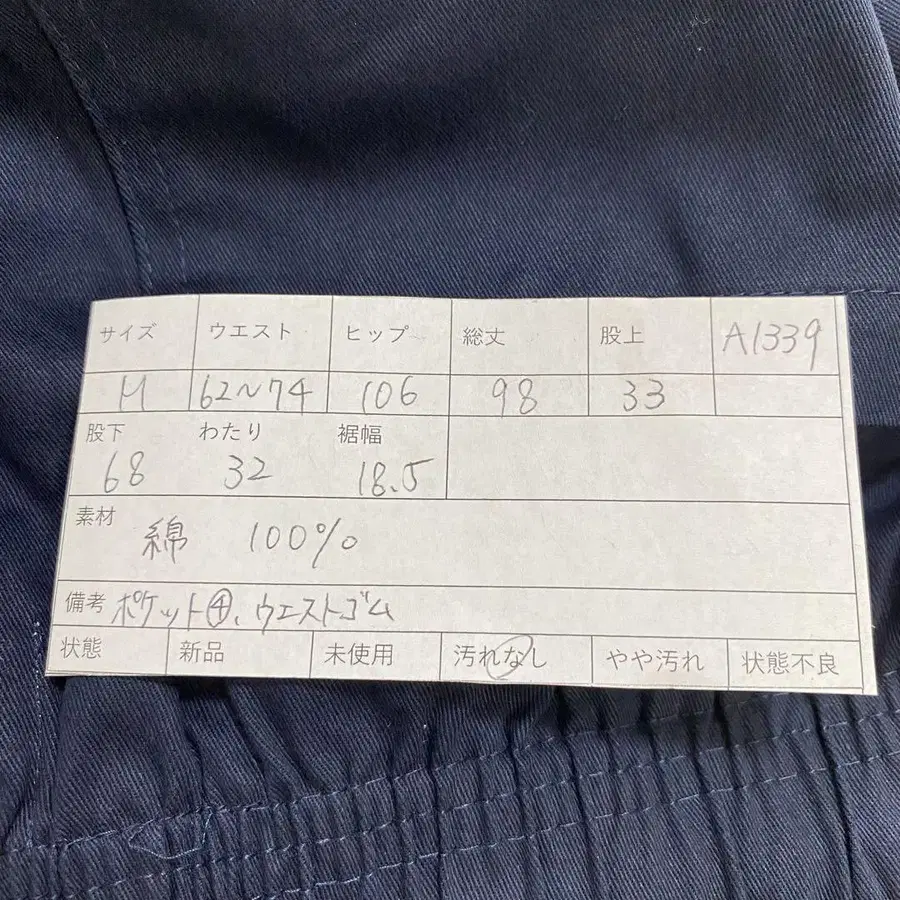 サイズ ウエスト ヒップ 総丈 股上 A1339
M 62~74 106 98 33
股下 わたり 裾幅
68 32 18.5
素材
綿 100%
備考 ポケット④、ウエストゴム
状態 新品 未使用 汚れなし やや汚れ 状態不良